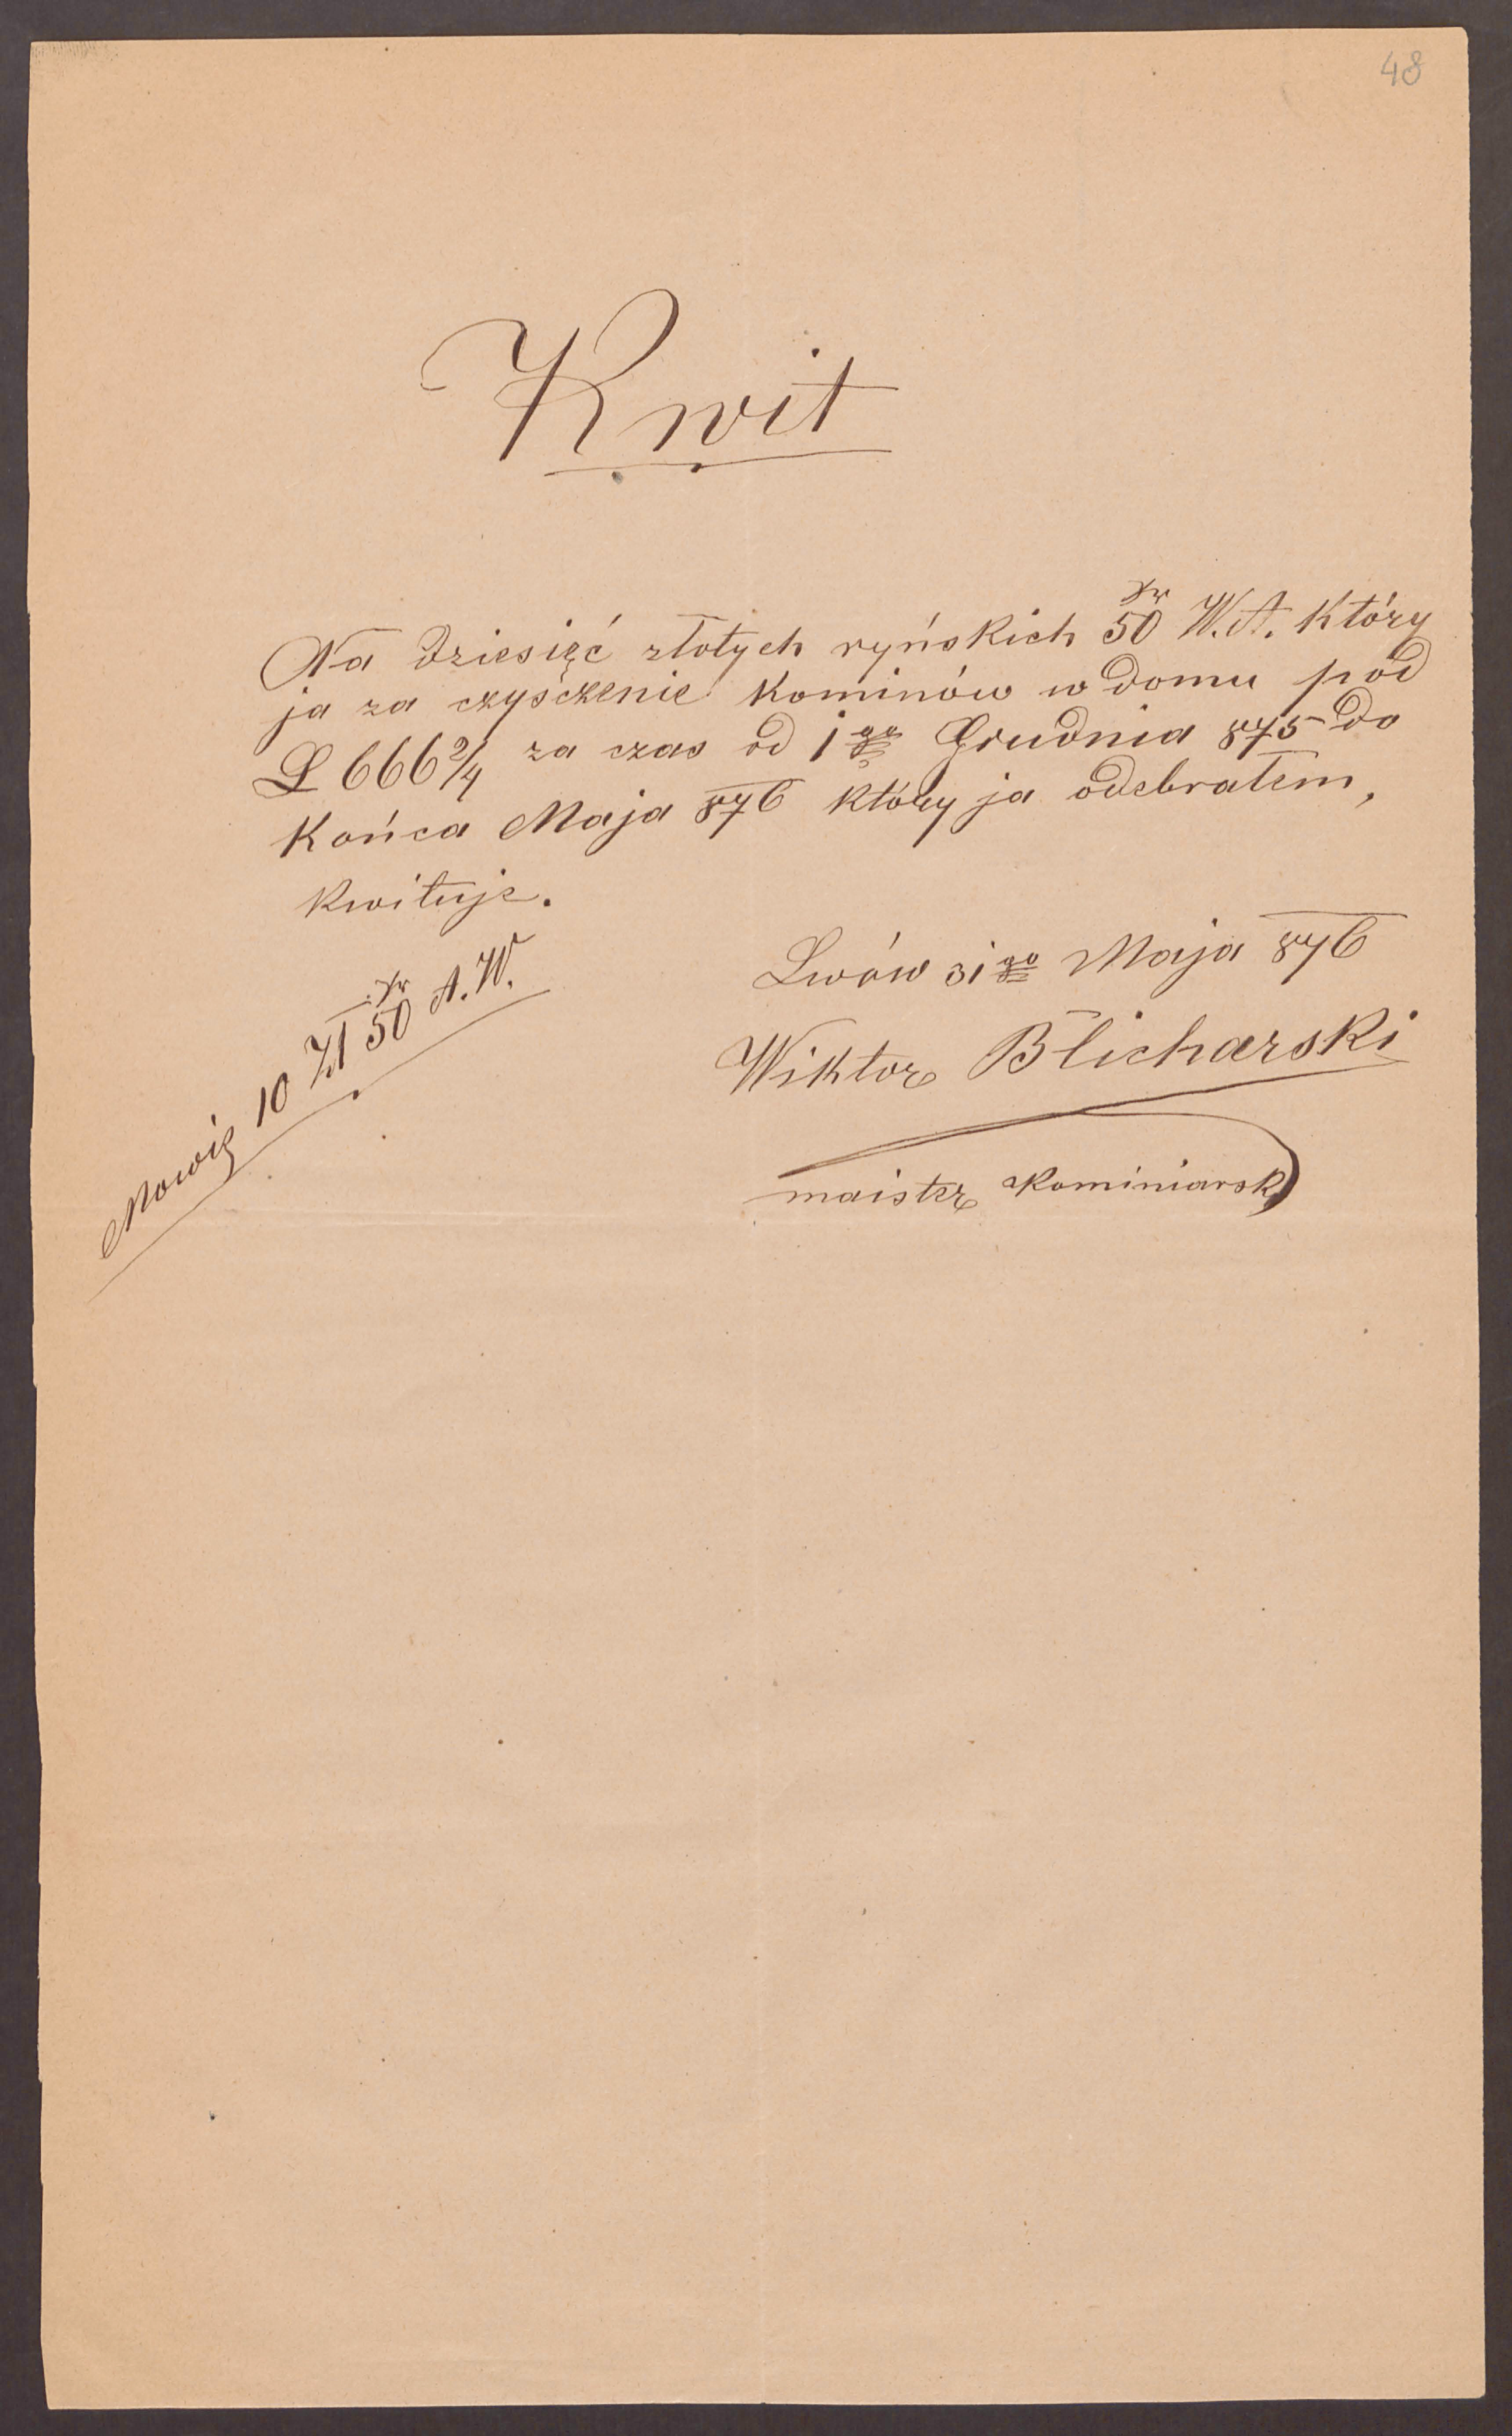 48
Kwit
Na dziesięć złotych ryńskich 50 kr W.A. który
ja za czyśczenie kominów w domu pod
L 666 2/4 za czas od 1go Grudnia 875 do
Końca Maja 876 który ja odebrałem,
kwituje.
Lwów 31go Maja 876
Wiktor Blicharski
maister kominiarski
Mowię 10 Zł 50 kr A.W.